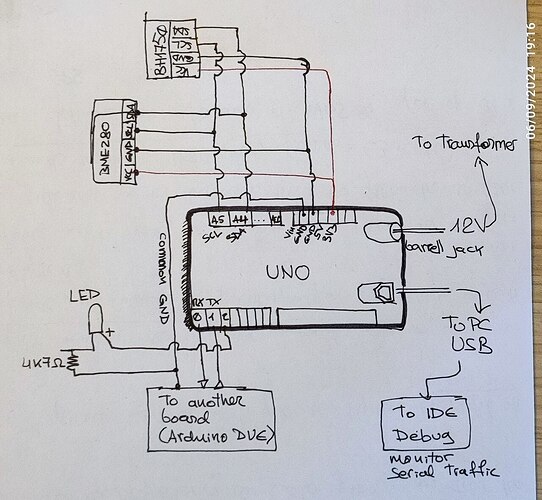 SDA
SCL
GND
VCC
BH1750
06/09/2024 19:16
SDA
SCL
GND
VCC
BME280
To Transformer
A5
A4
...
SCL
SDA
Vin
GND
GND
5V
12V
barrel jack
common GND
UNO
LED
+
RX TX
0
1
2
4K7Ω
To PC
USB
To another
board
(Arduino DUE)
To IDE
Debug
monitor
serial traffic